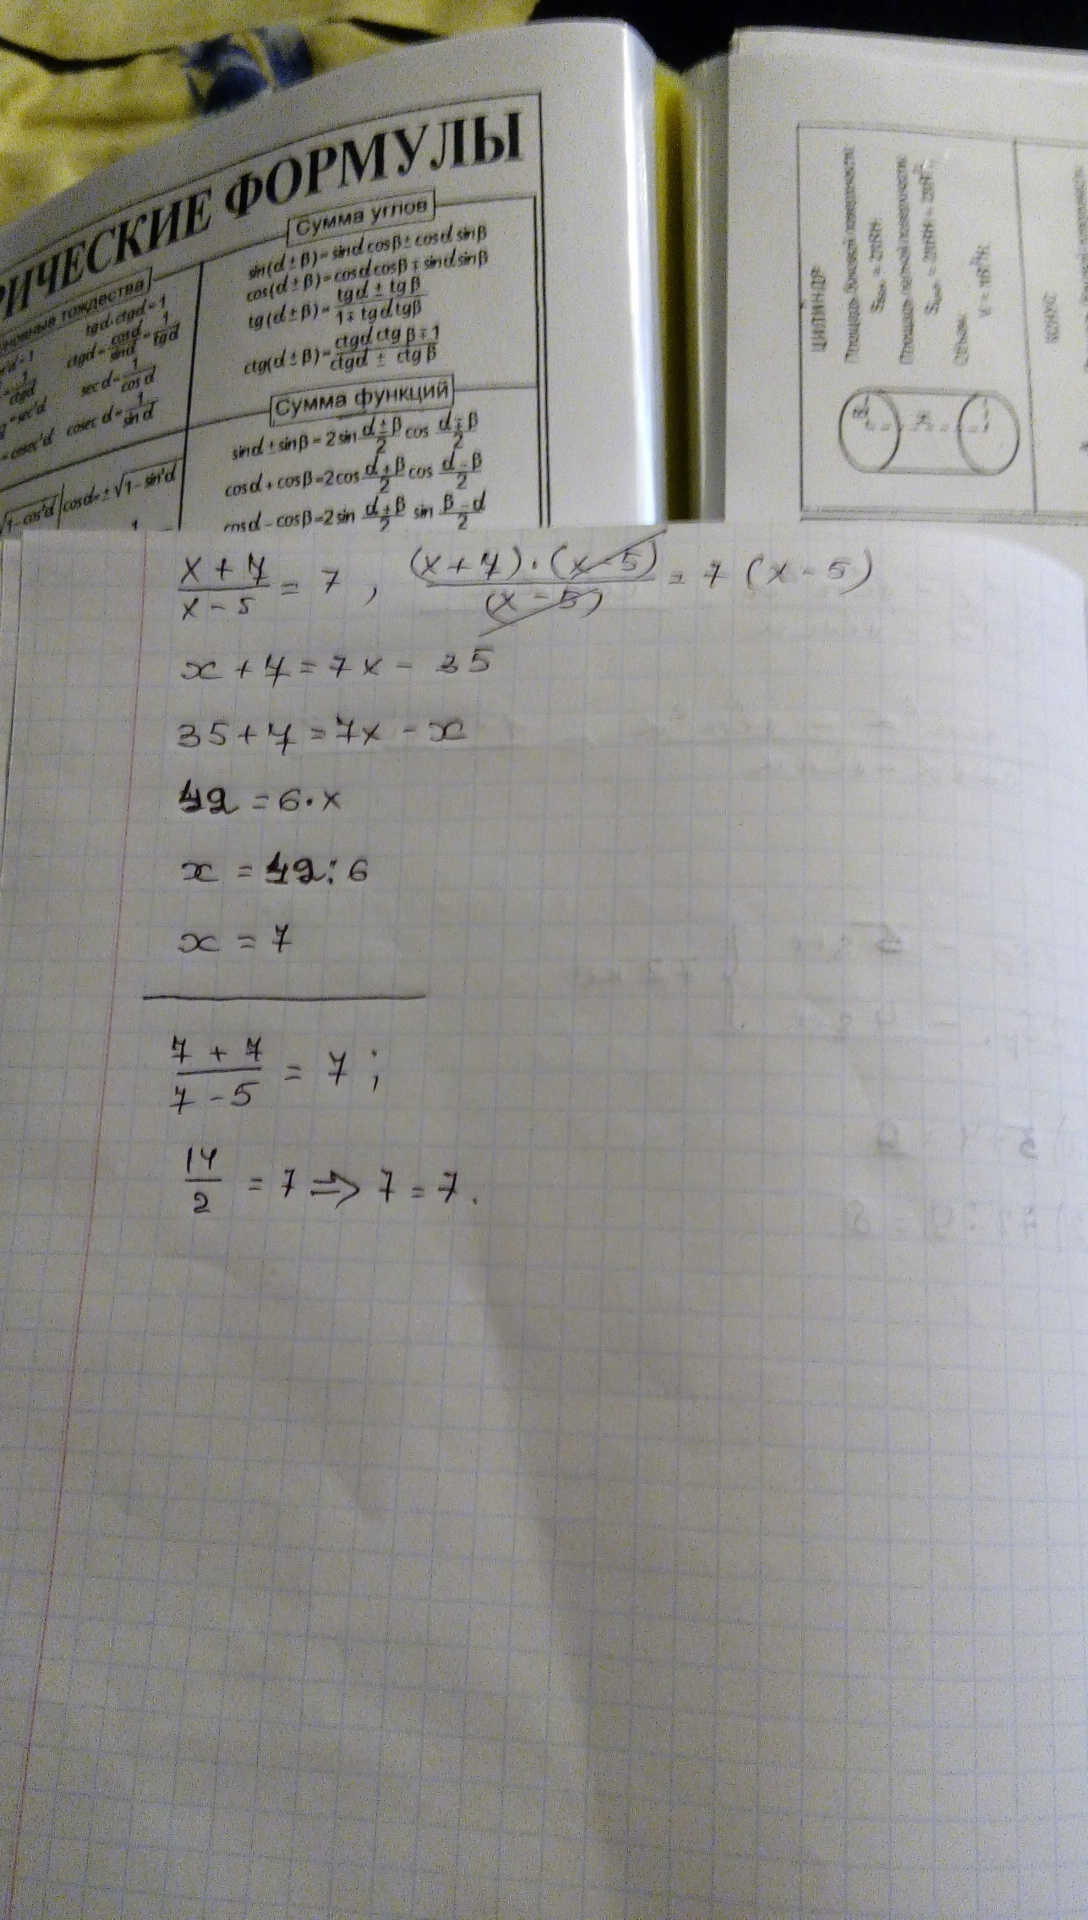 РИЧЕСКИЕ ФОРМУЛЫ
тождества
tgα·ctgα=1
ctgα=cosα/sinα=1/tgα
secα=1/cosα
cosecα=1/sinα
cosα=±√1−sin²α
Сумма углов
sin(α±β)=sinαcosβ±cosαsinβ
cos(α±β)=cosαcosβ∓sinαsinβ
tg(α±β)=tgα±tgβ/1∓tgαtgβ
ctg(α±β)=ctgαctgβ∓1/ctgα±ctgβ
Сумма функций
sinα±sinβ=2sin α±β/2 cos α∓β/2
cosα+cosβ=2cos α+β/2 cos α−β/2
cosα−cosβ=2sin α+β/2 sin β−α/2
ЦИЛИНДР
Площадь боковой поверхности:
Площадь полной поверхности:
Объём:
V = πR²H
КОНУС
x+7/x−5 = 7, (x+7)·(x−5)/(x−5) = 7(x−5)
x+7=7x−35
35+7=7x−x
42=6·x
x=42:6
x=7
7+7/7−5 = 7;
14/2 = 7 ⇒ 7=7.